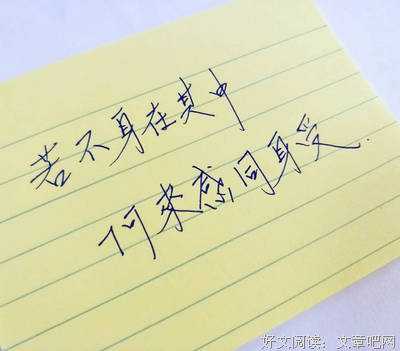 若不身在其中
何来感同身受.
好文阅读：文章吧网